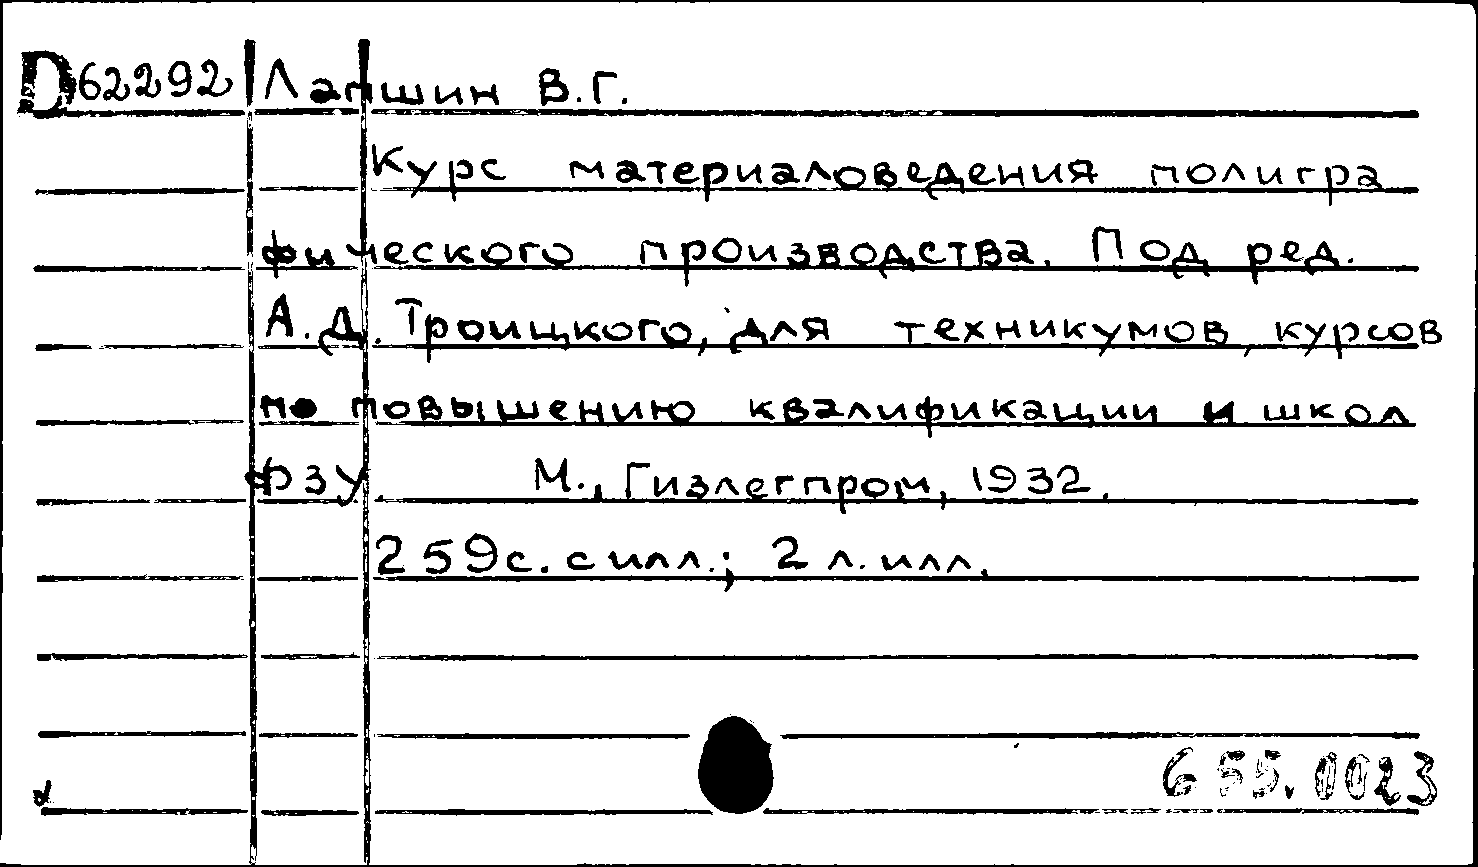 D62292 Лапшин В.Г.
Курс материаловедения полигра
фического производства. Под ред.
А.Д. Троицкого, для техникумов, курсов
по повышению квалификации и школ
ФЗУ. М., Гизлегпром, 1932.
259с. с илл.; 2 л. илл.
655.0023